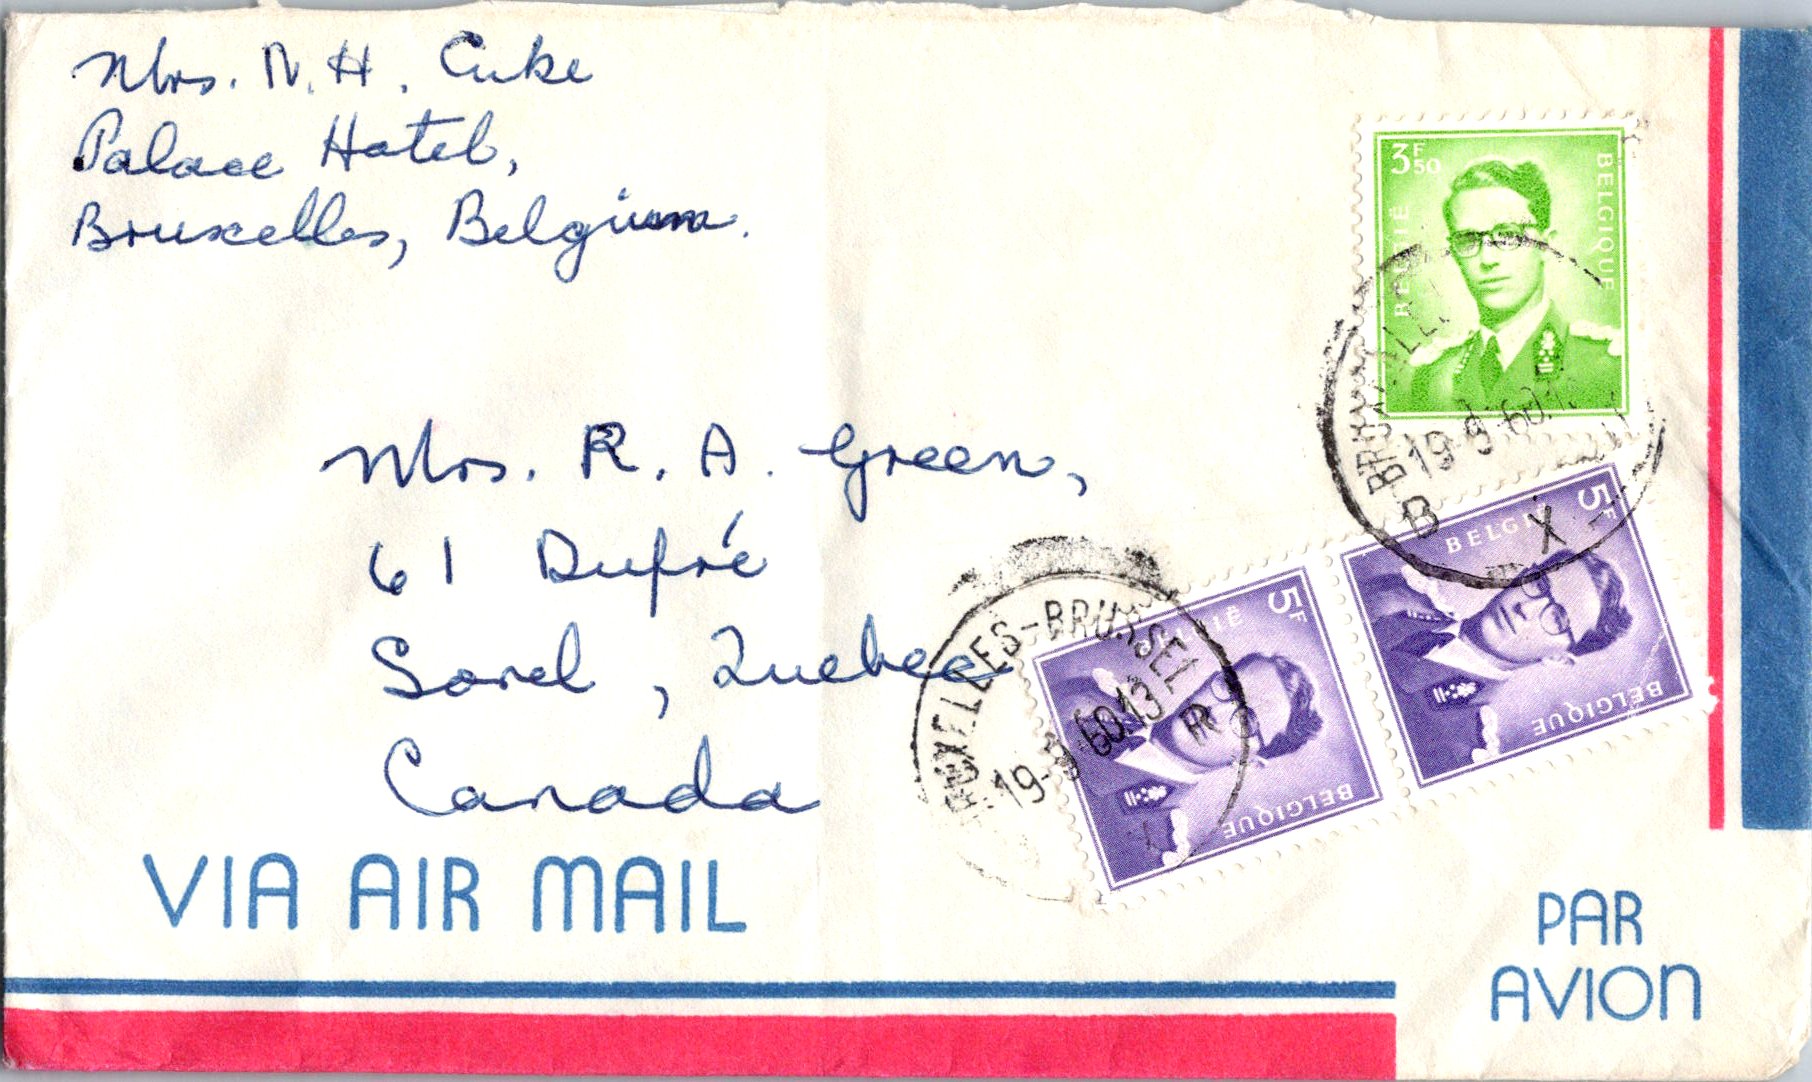 Mrs. N. H. Cuke
Palace Hotel,
Bruxelles, Belgium.
3F50
BELGIË
BELGIQUE
19-9-60
B X
Mrs. R. A. Green,
61 Dufré
Sorel, Quebec
Canada
5F
BELGIË
BELGIQUE
5F
BELGIË
BELGIQUE
BRUXELLES-BRUSSEL
19-9-60.13
X
VIA AIR MAIL
PAR
AVION